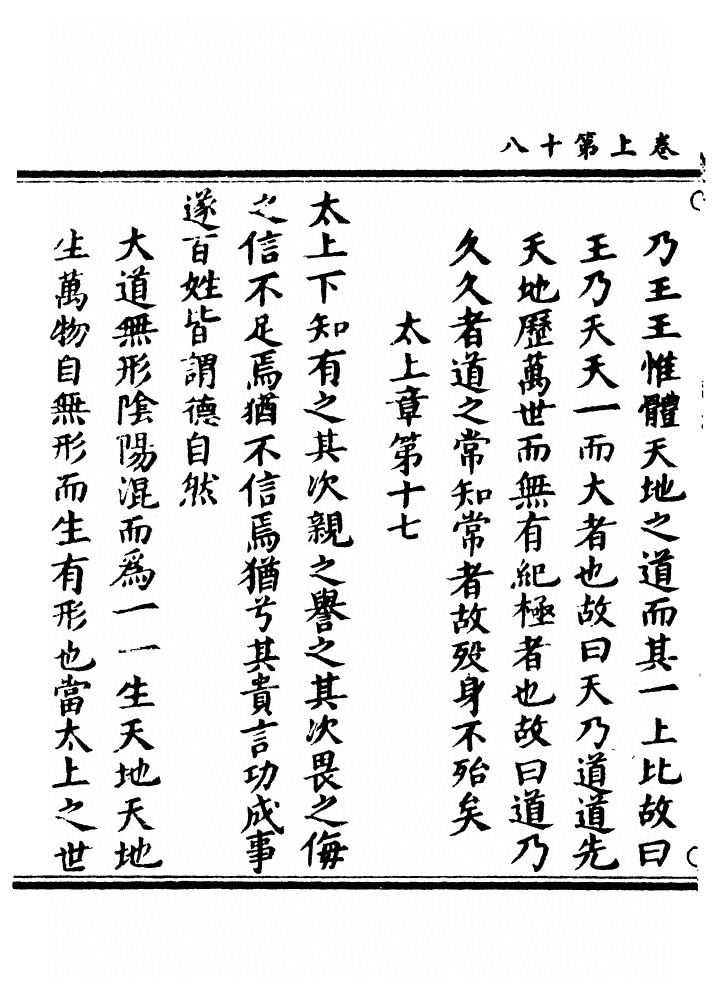 卷上第十八
乃王王惟體天地之道而其一上比故曰
王乃天天一而大者也故曰天乃道道先
天地歷萬世而無有紀極者也故曰道乃
久久者道之常知常者故歿身不殆矣
太上章第十七
太上下知有之其次親之譽之其次畏之侮
之信不足焉猶不信焉猶兮其貴言功成事
遂百姓皆謂德自然
大道無形陰陽混而為一一生天地天地
生萬物自無形而生有形也當太上之世